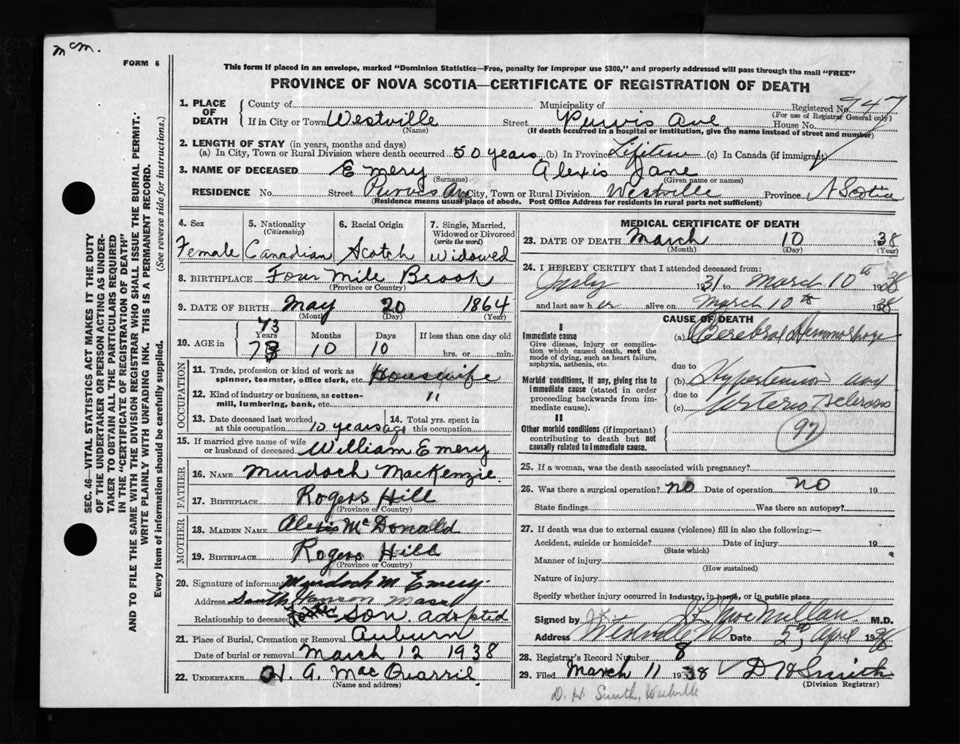 McM.
FORM 6
This form if placed in an envelope, marked "Dominion Statistics—Free, penalty for improper use $300," and properly addressed will pass through the mail "FREE"
PROVINCE OF NOVA SCOTIA—CERTIFICATE OF REGISTRATION OF DEATH
SEC. 46—VITAL STATISTICS ACT MAKES IT THE DUTY
OF THE UNDERTAKER OR PERSON ACTING AS UNDER-
TAKER TO OBTAIN ALL THE PARTICULARS REQUIRED
IN THE "CERTIFICATE OF REGISTRATION OF DEATH"
AND TO FILE THE SAME WITH THE DIVISION REGISTRAR WHO SHALL ISSUE THE BURIAL PERMIT.
WRITE PLAINLY WITH UNFADING INK. THIS IS A PERMANENT RECORD.
Every item of information should be carefully supplied. (See reverse side for instructions.)
1. PLACE OF DEATH County of Municipality of Registered No. 747
(For use of Registrar General only)
If in City or Town Westville Street Purvis Ave House No.
(Name) (If death occurred in a hospital or institution, give the name instead of street and number)
2. LENGTH OF STAY (in years, months and days)
(a) In City, Town or Rural Division where death occurred 50 years (b) In Province Lifetime (c) In Canada (if immigrant)
3. NAME OF DECEASED Emery Alexis Jane
(Surname) (Given name or names)
RESIDENCE No. Street Purvis Ave City, Town or Rural Division Westville Province N Scotia
(Residence means usual place of abode. Post Office Address for residents in rural parts not sufficient)
4. Sex 5. Nationality (Citizenship) 6. Racial Origin 7. Single, Married, Widowed or Divorced (write the word)
Female Canadian Scotch Widowed
8. BIRTHPLACE Four Mile Brook
(Province or Country)
9. DATE OF BIRTH May 20 1864
(Month) (Day) (Year)
73
10. AGE in Years Months Days If less than one day
73 10 10 hrs. or min.
OCCUPATION
11. Trade, profession or kind of work as spinner, teamster, office clerk, etc. Housewife
12. Kind of industry or business, as cotton-mill, lumbering, bank, etc. "
13. Date deceased last worked at this occupation 10 years ago 14. Total yrs. spent in this occupation
15. If married give name of wife or husband of deceased William Emery
FATHER
16. NAME Murdoch MacKenzie
17. BIRTHPLACE Rogers Hill
(Province or Country)
MOTHER
18. MAIDEN NAME Alexis McDonald
19. BIRTHPLACE Rogers Hill
(Province or Country)
20. Signature of informant Murdoch M Emery
Address South Hanson Mass
Relationship to deceased son adopted
21. Place of Burial, Cremation or Removal Auburn
Date of burial or removal March 12 1938
22. UNDERTAKER H. A. MacQuarrie
(Name and address)
MEDICAL CERTIFICATE OF DEATH
23. DATE OF DEATH March 10 1938
(Month) (Day) (Year)
24. I HEREBY CERTIFY that I attended deceased from:
July 1931 to March 10th 1938
and last saw her alive on March 10th 1938
CAUSE OF DEATH
I
Immediate cause
Give disease, injury or complication which caused death, not the mode of dying, such as heart failure, asphyxia, asthenia, etc.
(a) Cerebral Hemorrhage
due to
Morbid conditions, if any, giving rise to immediate cause (stated in order proceeding backwards from immediate cause).
(b) Hypertension and
due to
(c) Arteriosclerosis
II
Other morbid conditions (if important) contributing to death but not causally related to immediate cause.
97
25. If a woman, was the death associated with pregnancy?
26. Was there a surgical operation? no Date of operation no 19
State findings Was there an autopsy?
27. If death was due to external causes (violence) fill in also the following:—
Accident, suicide or homicide? Date of injury 19
(State which)
Manner of injury
(How sustained)
Nature of injury
Specify whether injury occurred in industry, in home, or in public place
Signed by MacMillan M.D.
Address Westville NS Date 5th April 1938
28. Registrar's Record Number 8
29. Filed March 11 1938 D H Smith
(Division Registrar)
D. H. Smith, Westville